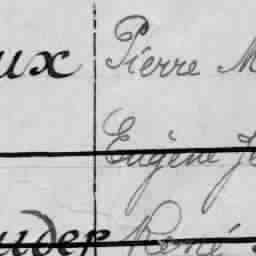 ux Pierre M
Eugène Je
uder René